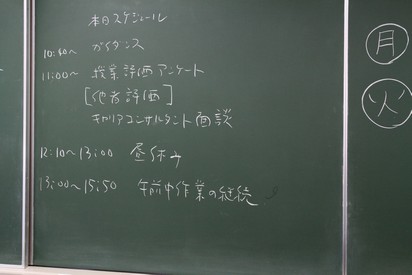 本日スケジュール
10:40~ ガイダンス
11:00~ 職業評価アンケート
[他者評価]
キャリアコンサルタント面談
12:10~13:00 昼休み
13:00~15:50 午前中作業の継続
月
火